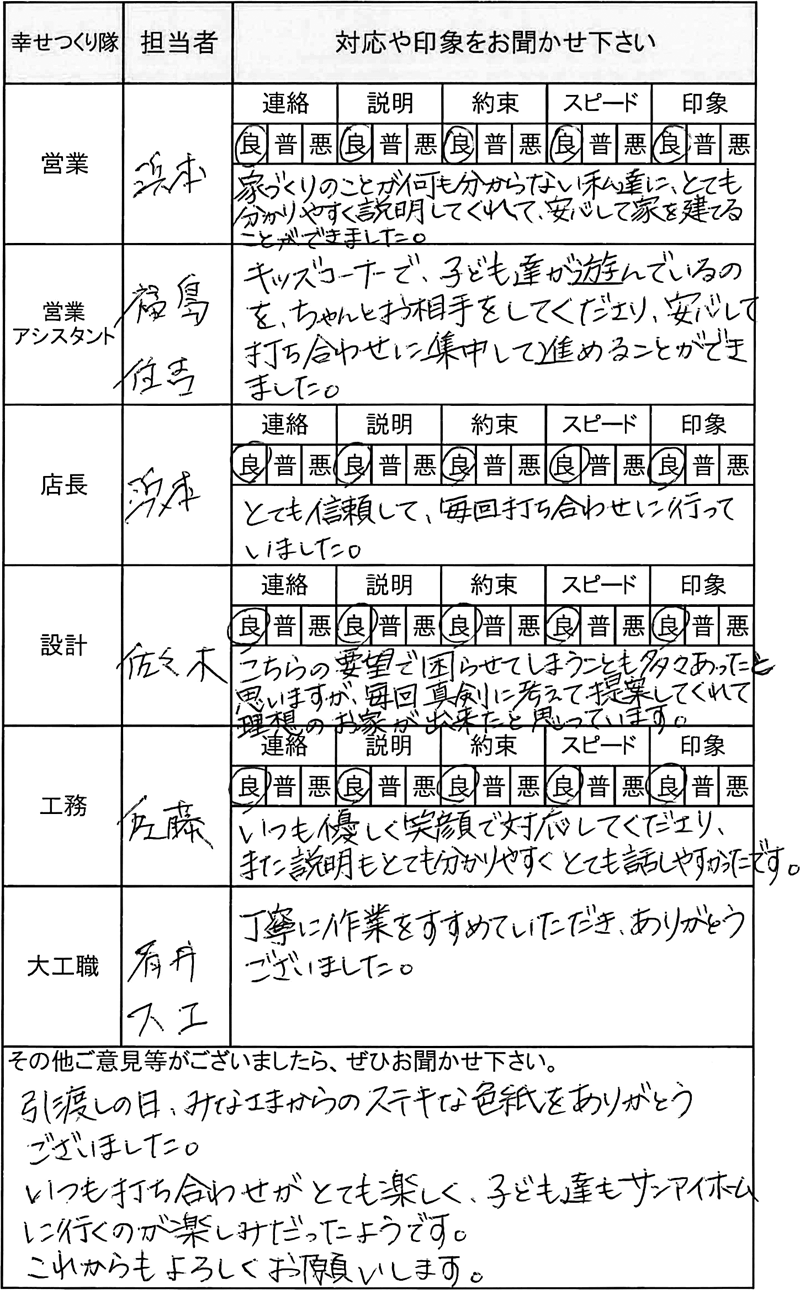 幸せつくり隊 担当者 対応や印象をお聞かせ下さい
営業 浜本
連絡 説明 約束 スピード 印象
良 普 悪 良 普 悪 良 普 悪 良 普 悪 良 普 悪
家づくりのことが何も分からない私達に、とても
分かりやすく説明してくれて、安心して家を建てる
ことができました。
営業
アシスタント
福島
住吉
キッズコーナーで、子ども達が遊んでいるの
を、ちゃんとお相手をしてくださり、安心して
打ち合わせに集中して進めることができ
ました。
店長 浜本
連絡 説明 約束 スピード 印象
良 普 悪 良 普 悪 良 普 悪 良 普 悪 良 普 悪
とても信頼して、毎回打ち合わせに行って
いました。
設計 佐々木
連絡 説明 約束 スピード 印象
良 普 悪 良 普 悪 良 普 悪 良 普 悪 良 普 悪
こちらの要望で困らせてしまうことも多々あったと
思いますが、毎回真剣に考えて提案してくれて
理想のお家が出来たと思っています。
工務 佐藤
連絡 説明 約束 スピード 印象
良 普 悪 良 普 悪 良 普 悪 良 普 悪 良 普 悪
いつも優しく笑顔で対応してくださり、
また説明もとても分かりやすくとても話しやすかったです。
大工職
丁寧に作業をすすめていただき、ありがとう
ございました。
その他ご意見等がございましたら、ぜひお聞かせ下さい。
引渡しの日、みなさまからのステキな色紙をありがとう
ございました。
いつも打ち合わせがとても楽しく、子ども達もサンアイホーム
に行くのが楽しみだったようです。
これからもよろしくお願いします。